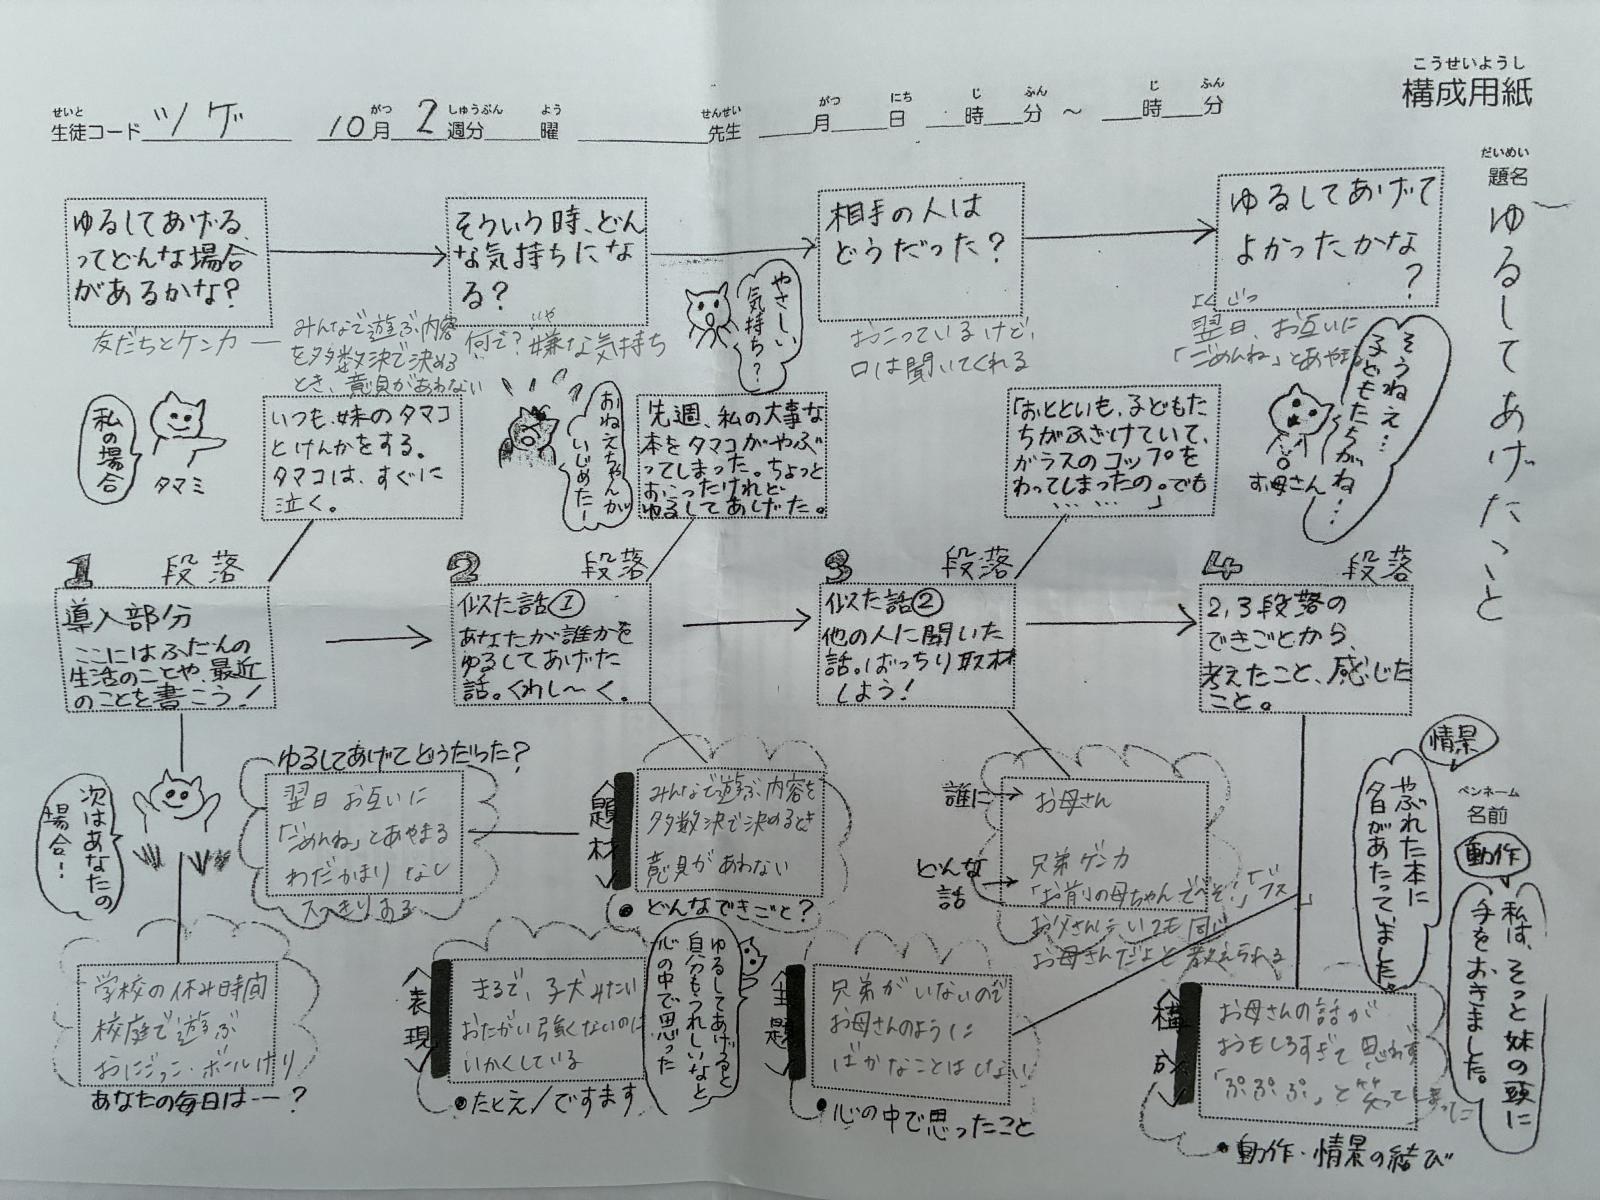 こうせいようし
構成用紙
せいと
生徒コード ツゲ
がつ しゅうぶん よう
10月 2週分 曜
せんせい
先生
がつ にち じ ふん じ ふん
月 日 時 分 〜 時 分
だいめい
題名
ゆるしてあげたこと
ゆるしてあげる、
ってどんな場合
があるかな?
友だちとケンカ
みんなで遊ぶ内容
を多数決で決める
とき、意見があわない
そういう時、どん
な気持ちにな
る?
いや
何で?嫌な気持ち
やさしい
気持ち?
相手の人は
どうだった?
おこっているけど、
口は聞いてくれる
ゆるしてあげて
よかったかな
?
よくじつ
翌日、お互いに
「ごめんね」とあやまる
私の場合
タマミ
いつも、妹のタマコ
とけんかをする。
タマコは、すぐに
泣く。
おねえちゃんが
いじめたー
先週、私の大事な
本をタマコがやぶ
ってしまった。ちょっと
おこったけれど、
ゆるしてあげた。
「おとといも、子どもた
ちがふざけていて、
ガラスのコップを
わってしまったの。でも
… … …」
お母さん
そうねえ…
子どもたちがね…
1 段落
導入部分
ここにはふだんの
生活のことや、最近
のことを書こう!
2 段落
似た話①
あなたが誰かを
ゆるしてあげた
話。くわし〜く。
3 段落
似た話②
他の人に聞いた
話。ばっちり取材
しよう!
4 段落
2,3段落の
できごとから、
考えたこと、感じた
こと。
次はあなたの
場合!
ゆるしてあげてどうだった?
翌日 お互いに
「ごめんね」とあやまる
わだかまり なし
スッキリある
題材
みんなで遊ぶ内容を
多数決で決めるとき
意見があわない
●どんなできごと?
誰に
お母さん
どんな
話
兄弟ゲンカ
「お前の母ちゃんでべそ!」「ブス」
お父さんに いつも同じ
お母さんだよと教えられる
情景
やぶれた本に
夕日があたっていました。
ペンネーム
名前
動作
私は、そっと妹の頭に
手をおきました。
学校の休み時間
校庭で遊ぶ
おにごっこ・ボールけり
あなたの毎日は--?
表現
まるで、子犬みたい
おたがい強くないのに
いかくしている
●たとえ/ですます
ゆるしてあげると
自分もうれしいなと
心の中で思った
主題
兄弟がいないので
お母さんのように
ばかなことはしない
●心の中で思ったこと
構成
お母さんの話が
おもしろすぎて 思わず
「ぷぷぷ」と笑って
●動作・情景の結び